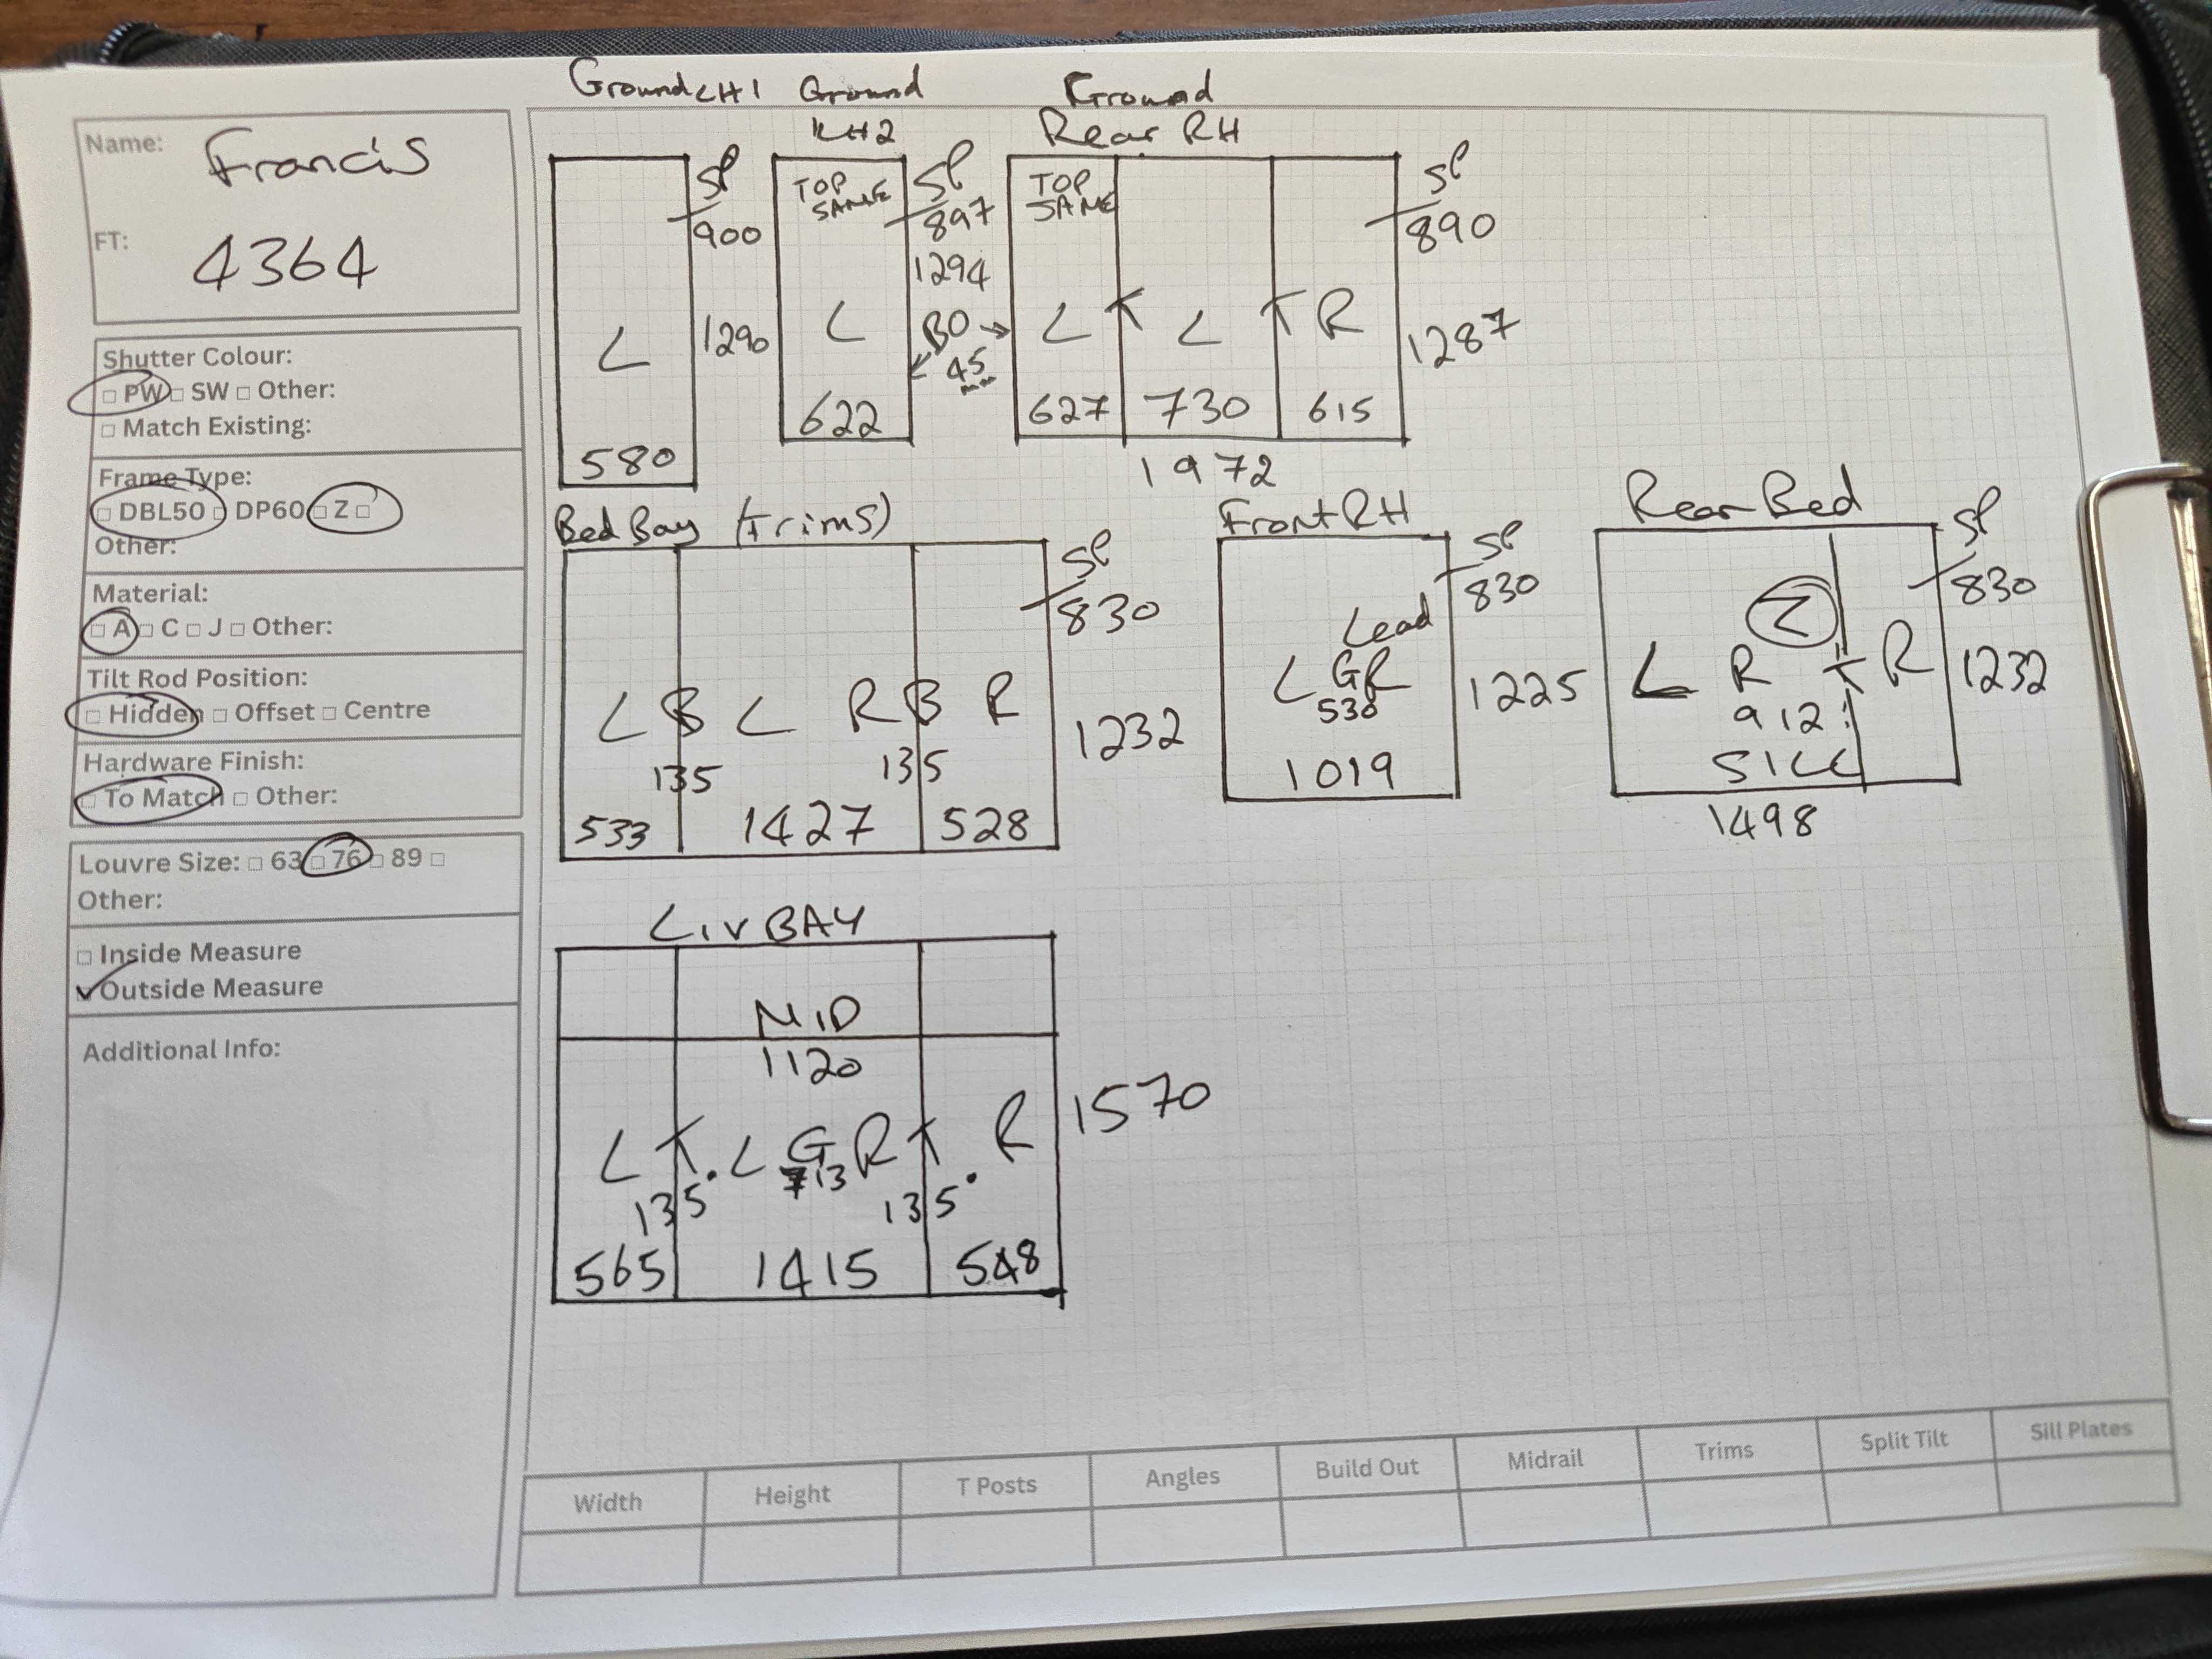 Name: Francis
FT: 4364
Shutter Colour:
□ PW □ SW □ Other:
□ Match Existing:
Frame Type:
□ DBL50 □ DP60 □ Z □
Other:
Material:
□ A □ C □ J □ Other:
Tilt Rod Position:
□ Hidden □ Offset □ Centre
Hardware Finish:
□ To Match □ Other:
Louvre Size: □ 63 □ 76 □ 89 □
Other:
□ Inside Measure
✓ Outside Measure
Additional Info:
Ground LH1
SP
900
L
1290
580
Ground
LH2
TOP
SAME
SP
897
1294
L
BO
45
622
Ground
Rear RH
TOP
SAME
SP
890
L T L T R
1287
627 730 615
1972
Bed Bay (Trims)
SP
830
L B L R B R
135 135
1232
533 1427 528
Front RH
SP
830
Lead
L G R
530
1225
1019
Rear Bed
SP
830
Z
L R T R
1232
912
SILL
1498
Liv BAY
MID
1120
1570
L T L G R T R
713
135° 135°
565 1415 548
Width Height T Posts Angles Build Out Midrail Trims Split Tilt Sill Plates